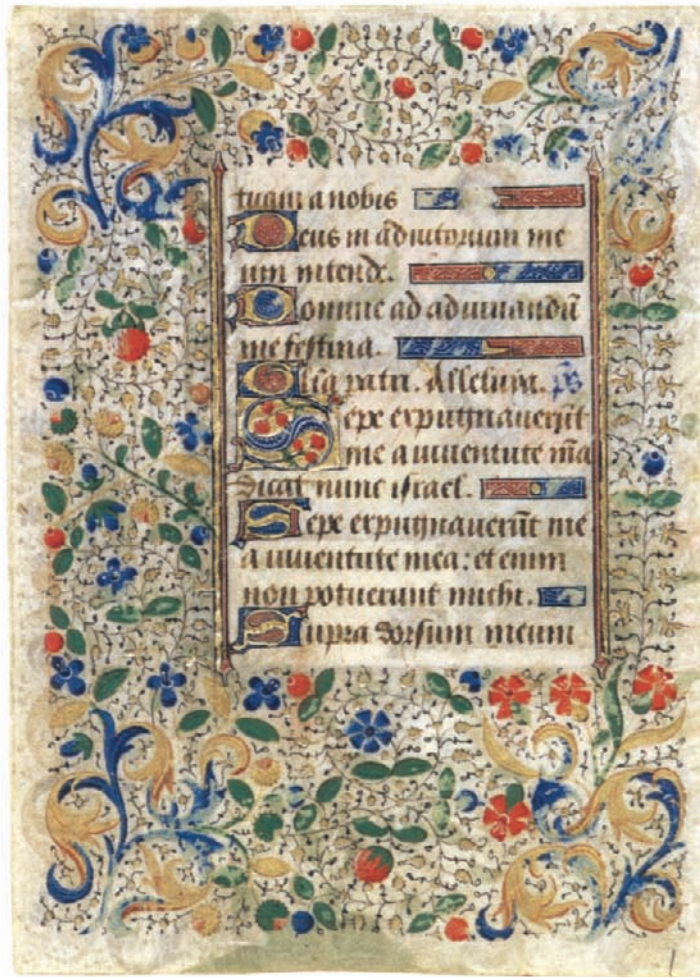 tuam a nobis
Deus in adiutorium me
um intende.
Domine ad adiuuandū
me festina.
Glīa patri. Alleluya. ps̄
Sepe expugnauerūt
me a iuuentute mea
dicat nunc israel.
Sepe expugnauerūt me
a iuuentute mea: et enim
non potuerunt michi.
Supra dorsum meum